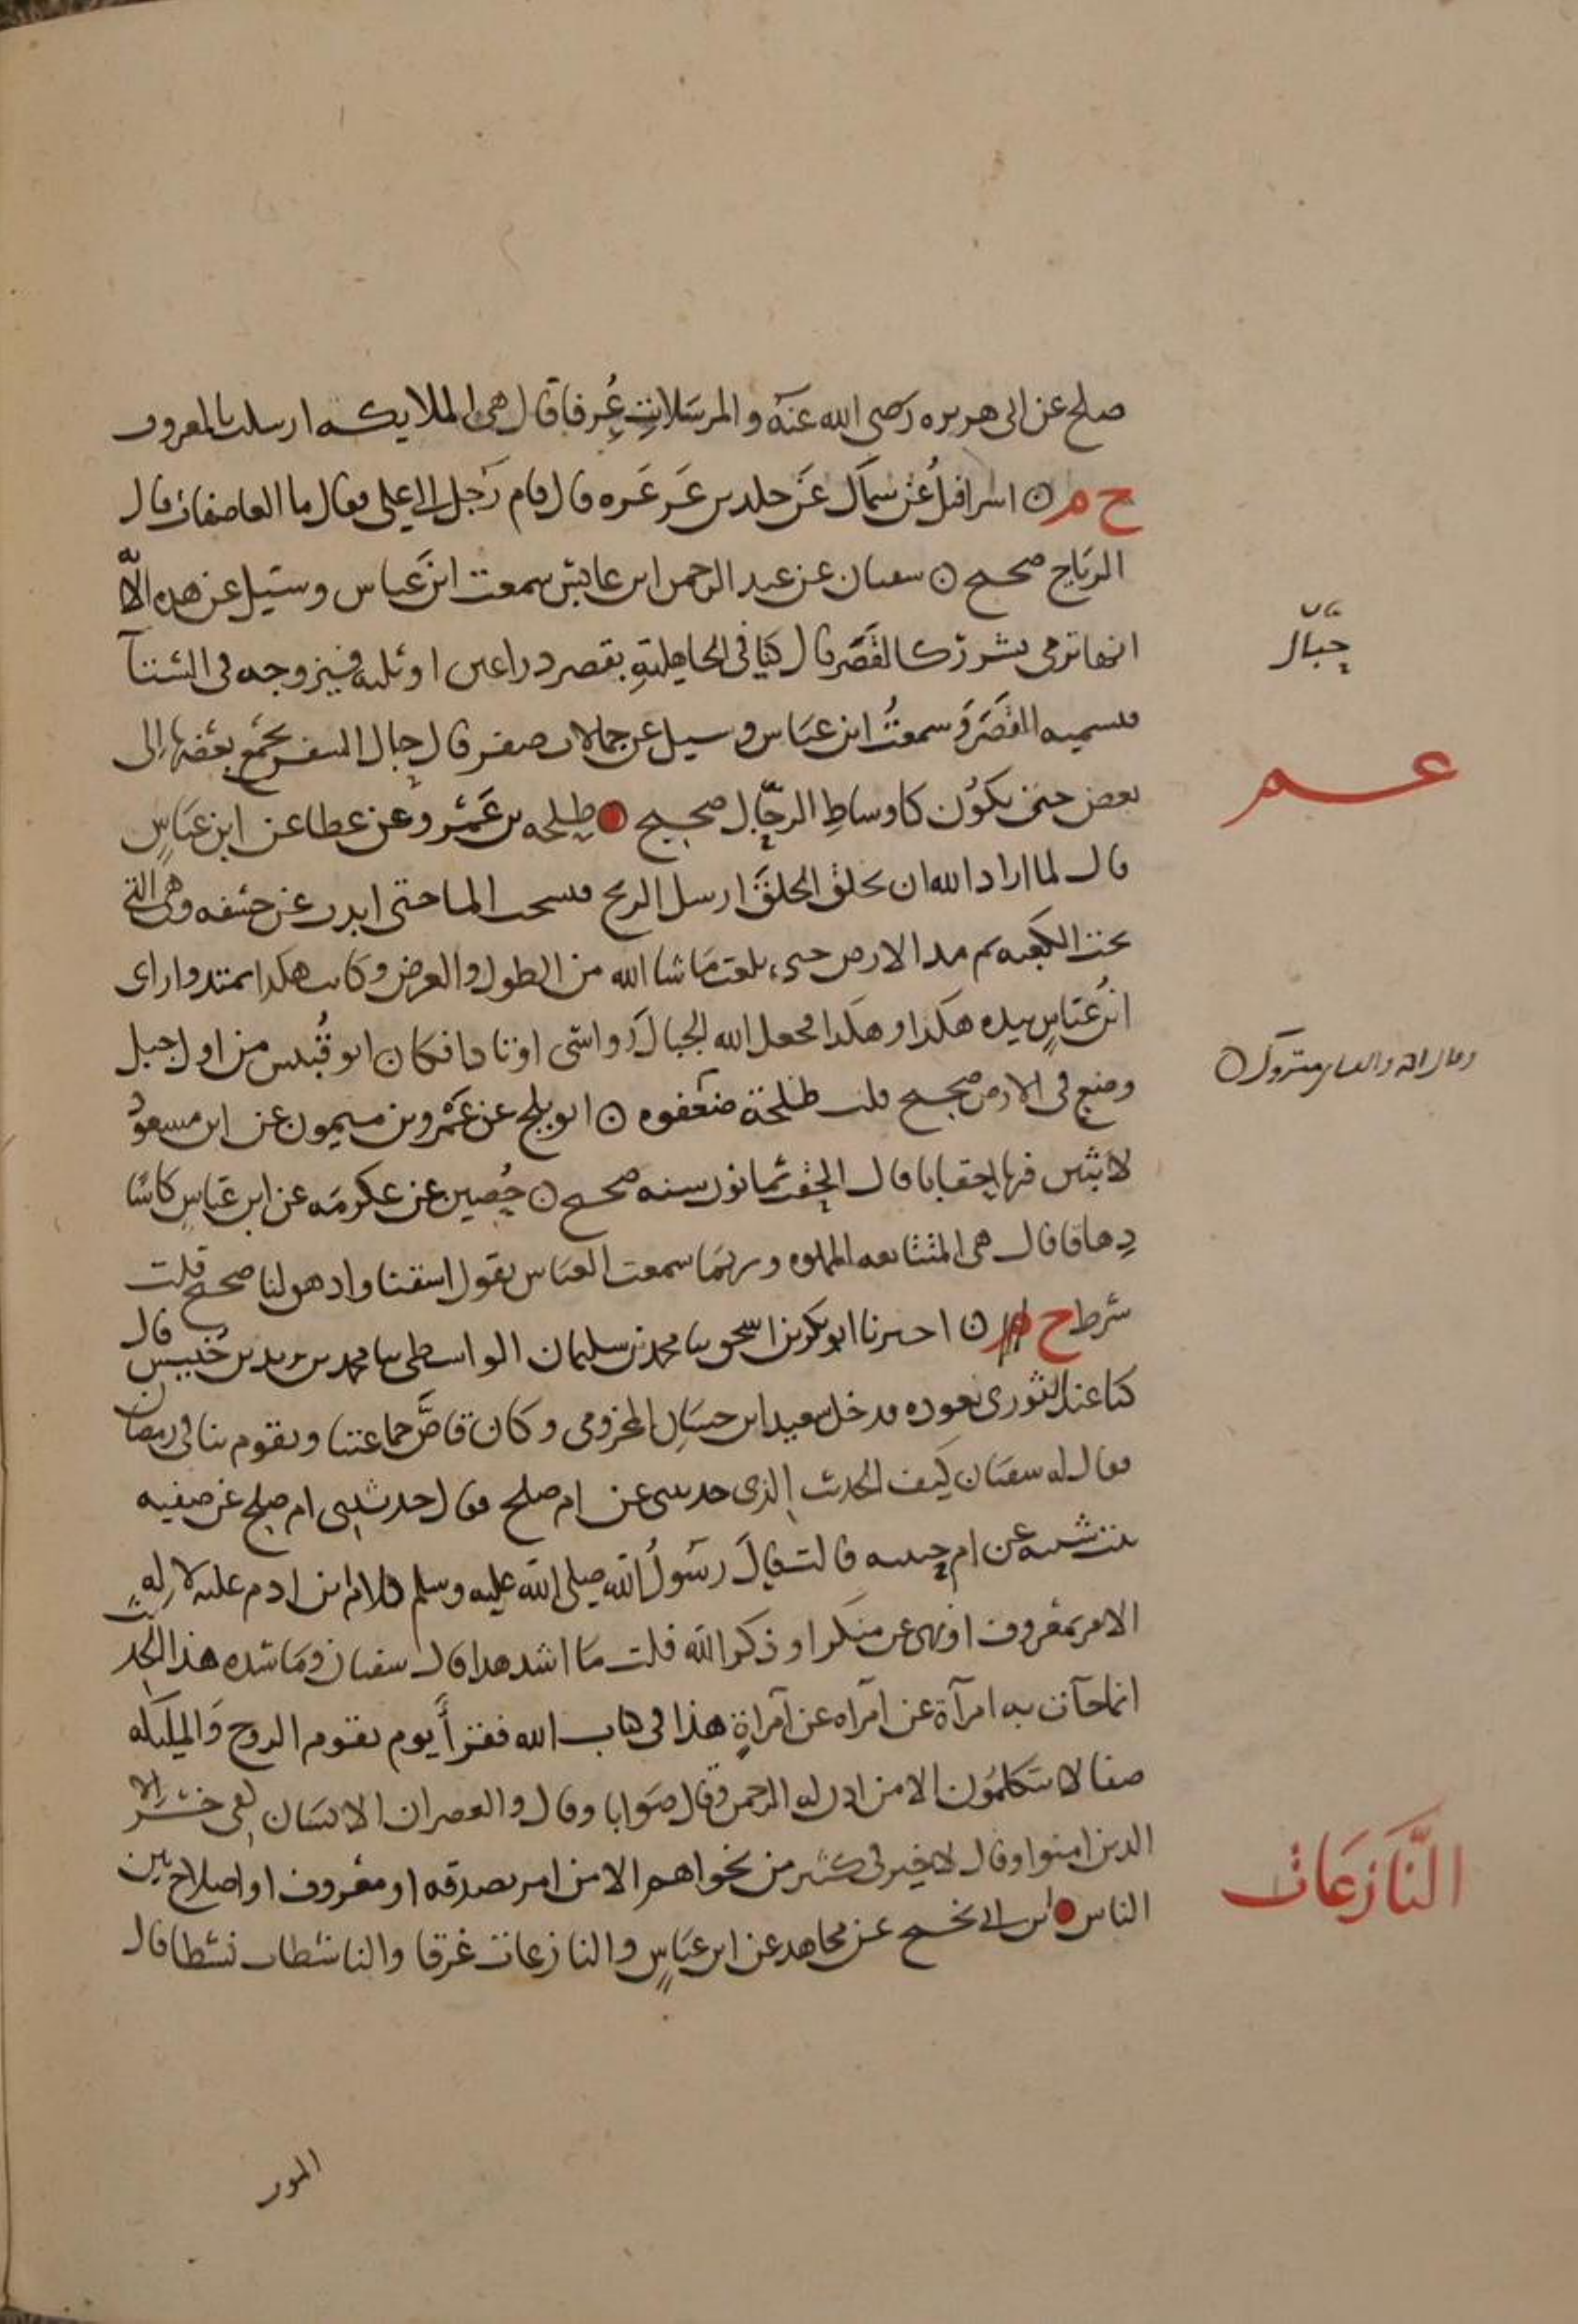 صلح عن ابى هريره رضى الله عنه والمرسلات عرفا قال هى الملايكه ارسلت بالمعروف
خ م ن اسرافيل عن سماك عن خلد بن عرعره قال قام رجل الى على فقال ما العاصفات قال
الرياح صحيح ن سفيان عن عبد الرحمن ابن عابس سمعت ابن عباس وسئيل عن هذه الآ
انها ترمى بشرر كالقصر قال كنا فى الجاهليه بقصر دراعين او ثلثه فيزوجه فى الشتا
جبال
فسميه القصر وسمعت ابن عباس وسيل عن جمالات صفر قال حبال السفن يجمع بعضها الى
عم
بعض حتى يكون كاوساط الرجال صحيح طلحه بن عمرو عن عطا عن ابن عباس
قال لما اراد الله ان يخلق الخلق ارسل الريح فسحت الما حتى ابدت عن حشفه وهى التى
تحت الكعبه ثم مد الارض حتى بلغت ما شا الله من الطول والعرض وكانت هكذا تمتد واراى
ابن عباس بيده هكذا وهكذا فجعل الله الجبال رواسى اوتادا فكان ابو قبيس من اول جبل
وضع فى الارض صحيح قلت طلحة ضعفوه ن ابو بلج عن عمرو بن ميمون عن ابن مسعود
لابثين فيها احقابا قال الحقب ثمانون سنه صحيح ن حصين عن عكرمه عن ابن عباس كاسا
دهاقا قال هى المتتابعه المملوه وربما سمعت العباس يقول اسقنا وادهق لنا صحيح قلت
شرط خ ن اخبرنا ابو بكر بن اسحق نا محمد بن سليمان الواسطى نا محمد بن يزيد بن خنيس قال
كنا عند الثورى نعوده فدخل سعيد ابن حسان المخزومى وكان قاص جماعتنا ويقوم بنا فى رمضان
فقال له سفيان كيف الحديث الذى حدثنى عن ام صلح فقال حدثتنى ام صلح عن صفيه
بنت شيبه عن ام حبيبه قالت قال رسول الله صلى الله عليه وسلم كلام ابن ادم عليه لا له
الا امر بمعروف او نهى عن منكر او ذكر الله فقلت ما اشد هذا قال سفيان وما شده هذا الحديث
انما جآت به امرآة عن امرآه عن امرآة هذا فى كتاب الله فقرأ يوم يقوم الروح والمليكه
صفا لا يتكلمون الا من اذن له الرحمن وقال صوابا وقال والعصر ان الانسان لفى خسر الا
الذين امنوا وقال لا خير فى كثير من نجواهم الا من امر بصدقه او معروف او اصلاح بين
النازعات
الناس ابن ابى نجيح عن مجاهد عن ابن عباس والنازعات غرقا والناشطات نشطا قال
الموت